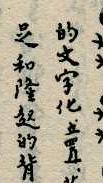 的文字化立置
足和隆起的背